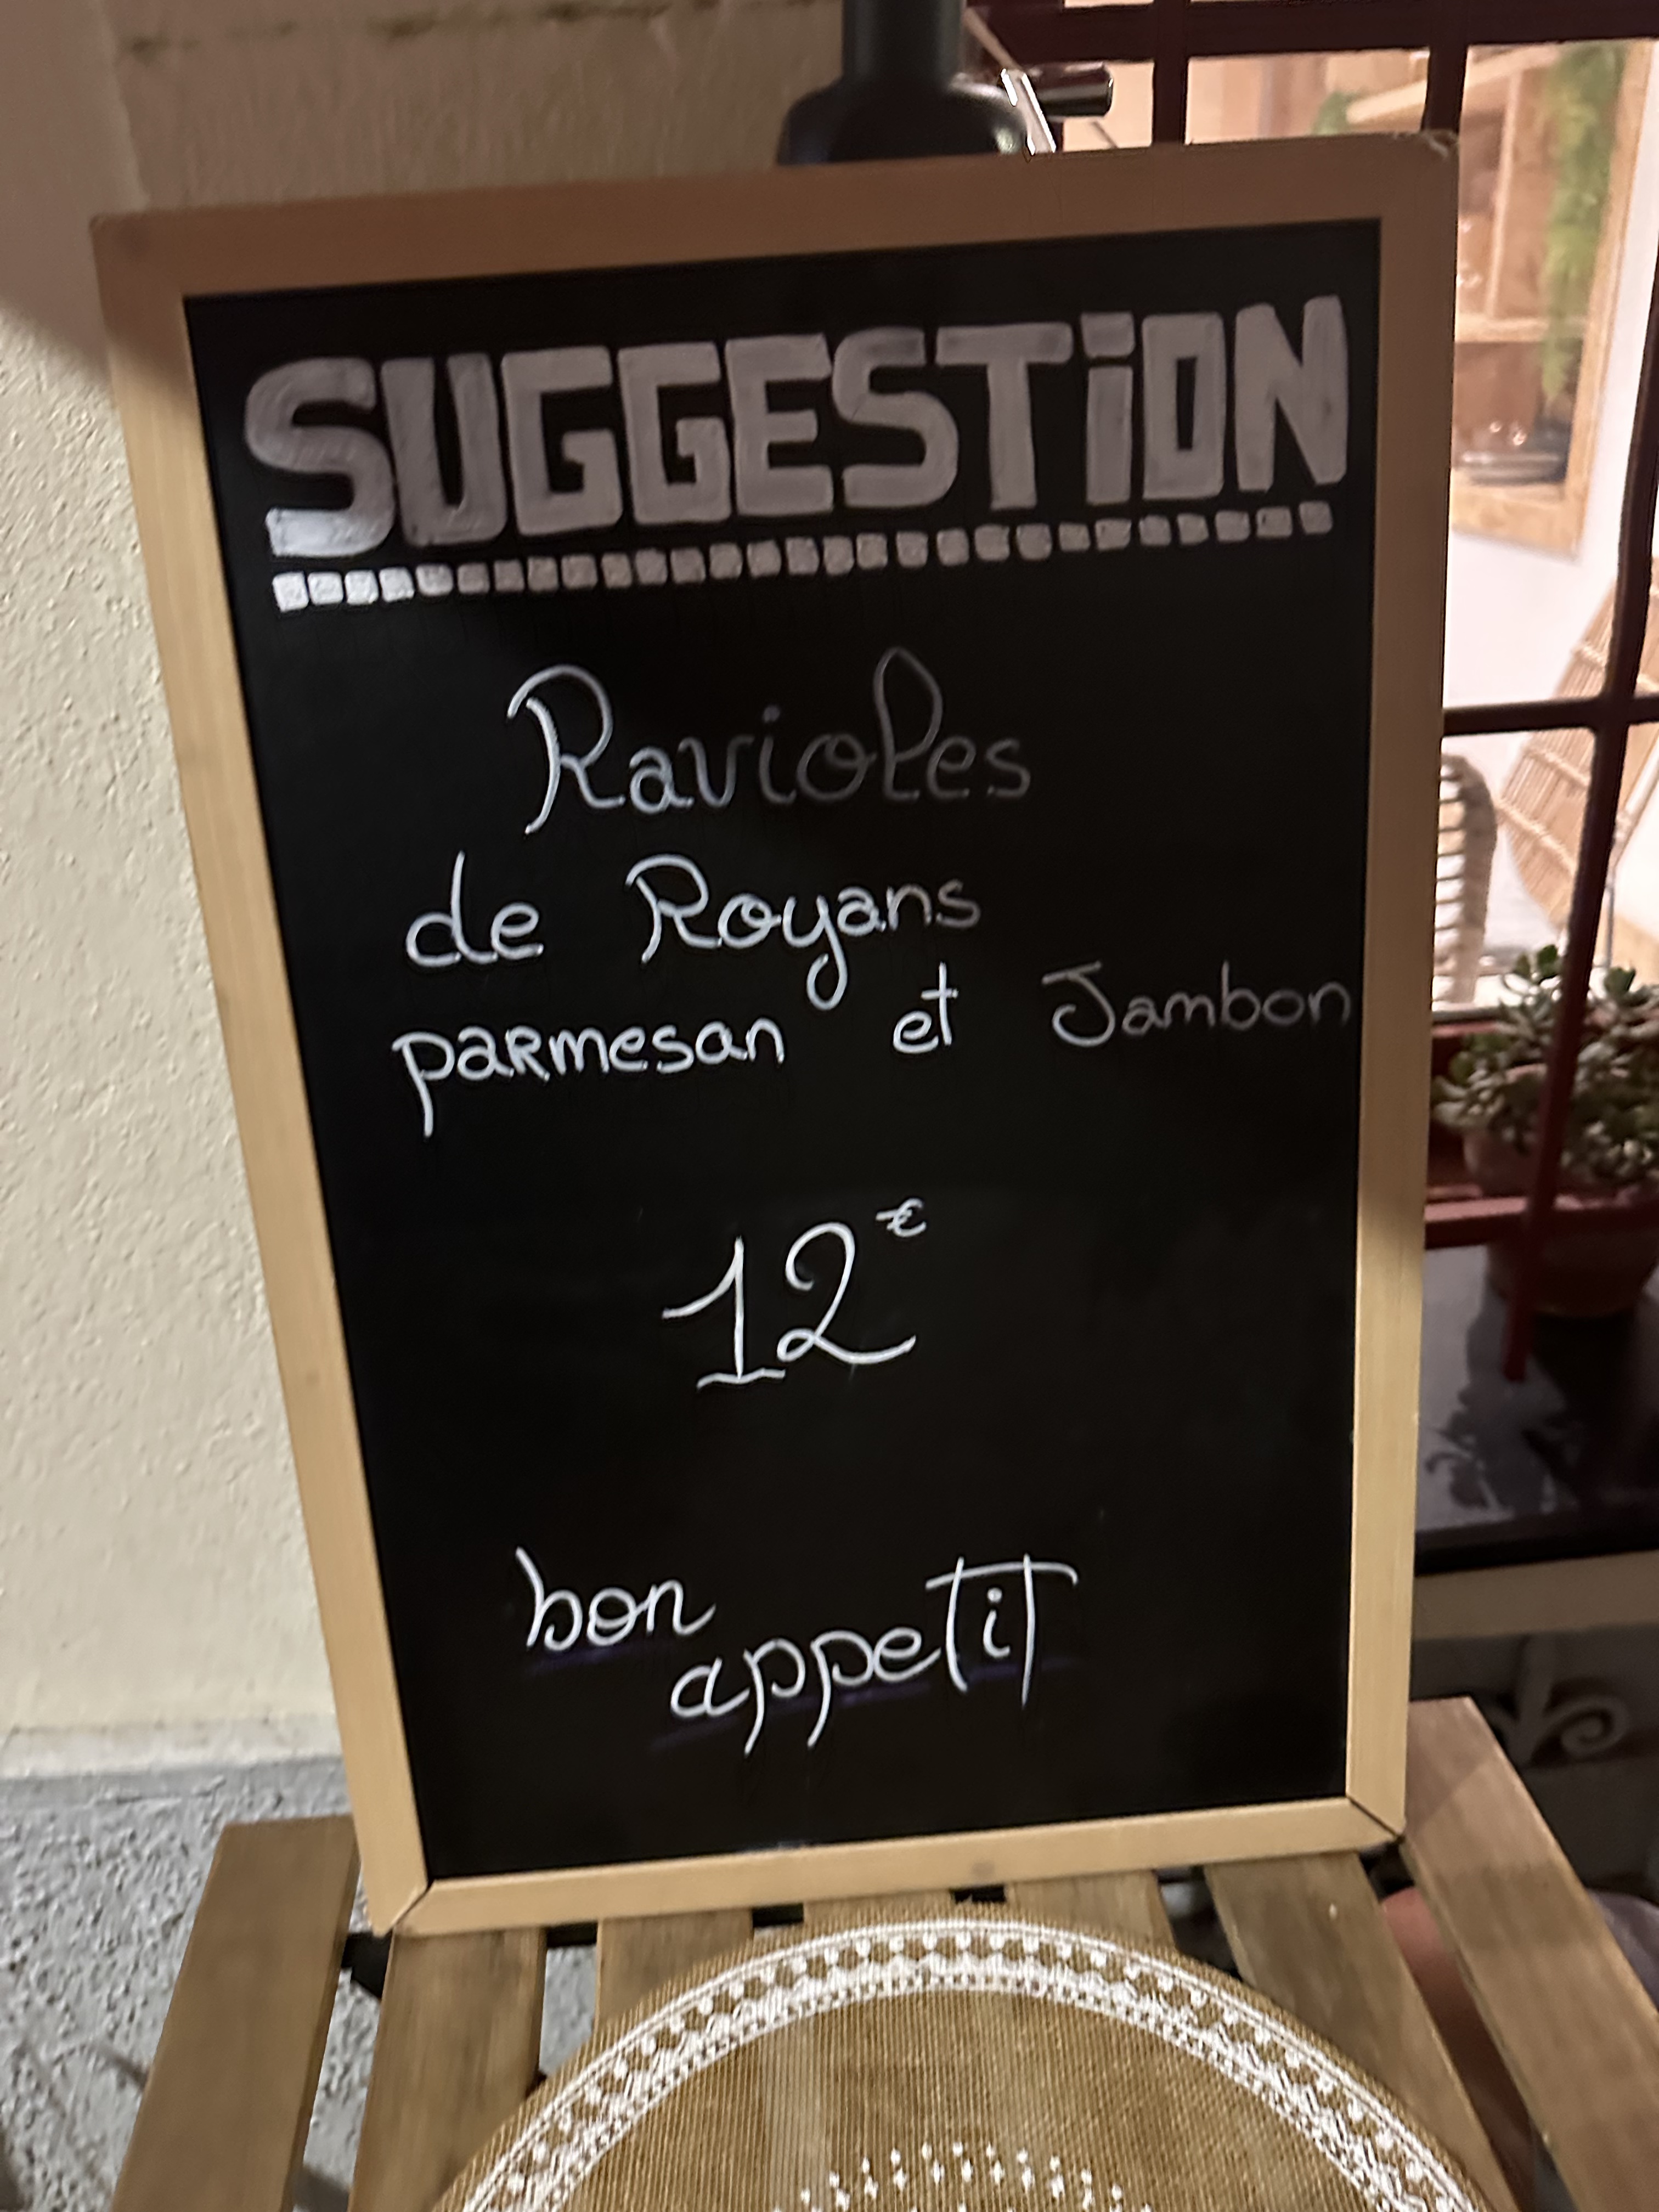 SUGGESTiON
Ravioles
de Royans
parmesan et Jambon
12€
bon
appetit